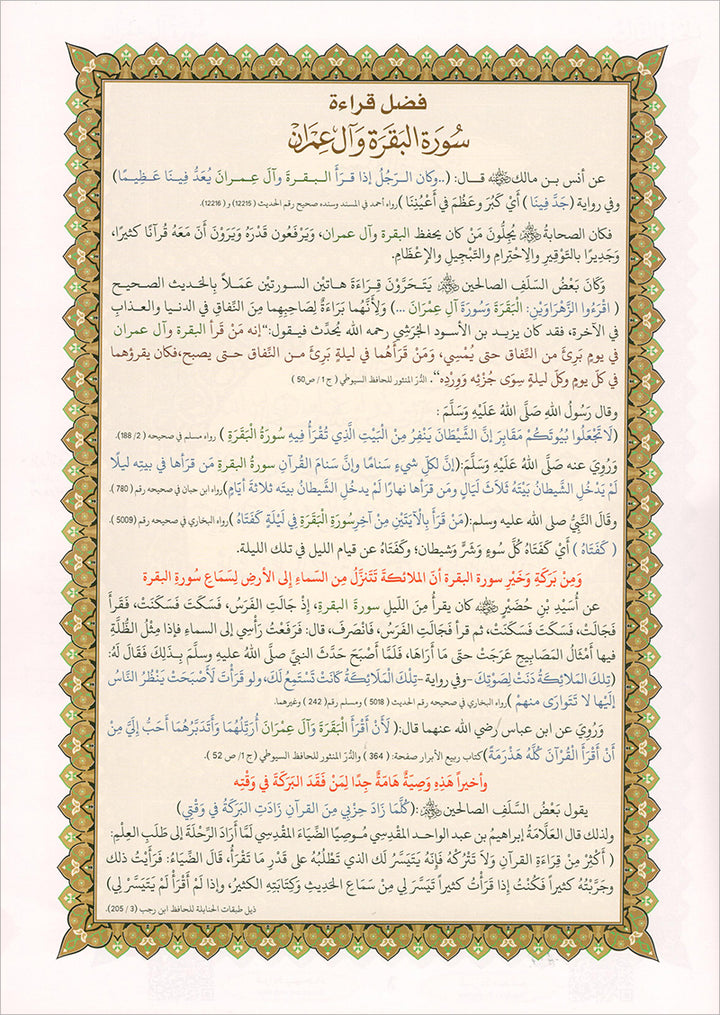 فضل قراءة
سُورَة البَقَرَة وَآل عِمْرَان
عن أنس بـن مالك ﷺ قـال: (..وكان الـرَّجُلُ إذا قـرَأَ الـبـقـرةَ وآلَ عِـمـرانَ يُعَدُّ فِينَـا عَـظِيـمًا)
وفي رواية (جَدَّ فِينَا ) أَيْ كَبُرَ وعَظُمَ في أَعْيُنِنَا )رواه أحمد في المسند وسنده صحيح رقم الحديث (12215) و ( 12216).
فكان الصحابةُ ﷺ يُجِلُّونَ مَنْ كان يحفظ البقرة وآل عمران، وَيَرْفَعُون قَدْرَهُ وَيَرَوْنَ أَنّ مَعَهُ قُرآنًا كثيرًا،
وَجَدِيرًا بالتَّوْقِيرِ وَالاحْتِرامِ وَالتَّبْجِيلِ وَالإعْظَامِ.
وَكَانَ بَعْضُ السَّلَفِ الصالحين ﷺ يَتَـحَرَّوْنَ قِـرَاءَةَ هـاتيْن السـورتيْن عَمَـلاً بِالحَـديث الصحـيح
( اقْرَءُوا الزَّهْرَاوَيْنِ: الْبَقَرَةَ وَسُورَةَ آلِ عِمْرَانَ ...) وَلأَنَّهُما بَرَاءَةٌ لِصَاحِبِهِما مِنَ النِّفاقِ في الدنيا والعذابِ
في الآخرة، فقد كان يزيـد بـن الأسود الجُرَشِي رحمه الله يُحدِّث فيقـول:“إنه مَنْ قَرأَ البقرة وآل عمران
في يومٍ بَرِئَ من النِّفاق حتى يُمْسِي، وَمَنْ قَرَأَهُما في ليلةٍ بَرِئَ مـن النِّفاق حتى يصبح،فكان يقرؤهما
في كلّ يومٍ وكلّ ليلةٍ سِوَى جُزْئِه وَوِرْدِه“. الدُّرّ المنثور للحافظ السيوطي ( ج 1/ ص50 )
وقال رَسُولُ اللهِ صَلَّى اللهُ عَلَيْهِ وَسَلَّمَ :
(لَا تَجْعَلُوا بُيُوتَكُمْ مَقَابِرَ إِنَّ الشَّيْطَانَ يَنْفِرُ مِنْ الْبَيْتِ الَّذِي تُقْرَأُ فِيهِ سُورَةُ الْبَقَرَةِ ) رواه مسلم في صحيحه ( 2/ 188).
وَرُوِيَ عنه صَلَّى اللهُ عَلَيْهِ وَسَلَّمَ:(إنَّ لكلِّ شيءٍ سَنامًا وإنَّ سَنامَ القُرآنِ سورةُ البقرةِ مَن قرأها في بيتِه ليلًا
لَمْ يَدْخُلِ الشيطانُ بَيْتَهُ ثَلَاثَ لَيَالٍ ومَن قرَأها نهارًا لَمْ يدخُلِ الشَّيطانُ بيتَه ثلاثةَ أيَّامٍ)رواه ابن حبان في صحيحه رقم ( 780 ).
وقَالَ النَّبِيُّ صلى الله عليه وسلم:(مَنْ قَرَأَ بِالْآيَتَيْنِ مِنْ آخِرِسُورَةِ الْبَقَرَةِ فِي لَيْلَةٍ كَفَتَاهُ )رواه البخاري في صحيحه رقم (5009).
( كَفَتَاهُ ) أَيْ كَفَتَاهُ كُلَّ سُوءٍ وَشَرٍّ وَشيطان؛ وكَفَتَاهُ عن قيام الليل في تلك الليلة.
وَمِنْ بَرَكَةِ وَخَيْرِ سورة البقرة أنّ الملائكةَ تَتَنزَّلُ مِن السَماءِ إلى الأرضِ لِسَمَاعِ سُورةِ البقرة
عن أُسَيْدِ بْنِ حُضَيْرٍ ﷺ كان يقرأُ مِنَ اللَّيلِ سورةَ البقرةِ، إذْ جَالَتِ الفَرَسُ، فَسَكَتَ فَسَكَنَتْ، فَقَرَأَ
فَجَالَتْ، فَسَكَتَ فَسَكَنَتْ، ثم قرأ فَجَالَتِ الفَرَسُ، فَانْصَرفَ، قال: فَرَفَعْتُ رَأْسِي إلى السماءِ فإذا مِثْلُ الظُّلَّةِ
فيها أَمْثَالُ المَصَابِيحِ عَرَجَتْ حتى مَا أَرَاهَا، فَلَمَّا أَصْبَحَ حَدَّثَ النبيَّ صلَّى اللهُ عليهِ وسلَّمَ بِـذلِكَ فَقَالَ لَهُ:
(تِلكَ المَلائِكَةُ دَنَتْ لِصَوْتِكَ -وفي رواية -تِلْكَ الْمَلَائِكَةُ كَانَتْ تَسْتَمِعُ لَكَ، ولو قرَأْتَ لَأَصْبَحَتْ يَنْظُرُ النَّاسُ
إِلَيْها لا تَتَوارَى منهمْ )رواه البخاري في صحيحه، رقم الحديث ( 5018 ) ومسلم رقم( 242 ) وغيرهما.
وَرُوِيَ عن ابن عباس رضي الله عنهما قال:( لَأَنْ أَقْرَأَ الْبَقَرَةَ وَآلَ عِمْرَانَ أُرَتِّلُهُمَا وَأَتَدَبَّرُهُمَا أَحَبُّ إِلَيَّ مِنْ
أَنْ أَقْرَأَ الْقُرْآنَ كُلَّهُ هَذْرَمَةً)كتاب ربيع الأبرار صفحة: ( 364 ) والدُّرّ المنثور للحافظ السيوطي (ج 1/ ص 52 ).
وأخيراً هَذِهِ وَصِيَّةٌ هَامَةٌ جِدًا لِمَنْ فَقَدَ البَرَكَةَ في وَقْتِه
يقول بَعْضُ السَّلَفِ الصالحين ﷺ:(كُلَّمَا زَادَ حِزْبِي مِنَ القرآنِ زَادَتِ البَرَكَةُ في وَقْتِي)
ولذلك قال العَلَّامَةُ إبراهيمُ بن عبد الواحد المَقْدِسِي مُـوصِيًا الضِّيَاءَ المَقْدِسِي لَمَّا أَرَادَ الرِّحْلَةَ إلى طَلَبِ العِلْمِ:
( أَكْثِرْ مِنْ قِرَاءَةِ القرآنِ وَلاَ تَتْرُكْهُ فَإِنَّهُ يَتَيَسَّرُ لَك الذي تَطْلُبُهُ على قَدْرِ مَا تَقْرَأُ، قَالَ الضِّيَاءُ: فَرَأَيْتُ ذلك
وجَرَّبْتُهُ كثيراً فَكُنْتُ إذَا قَرَأْتُ كثيراً تَيَسَّرَ لي مِنْ سَمَاعِ الحَدِيثِ وَكِتَابَتِهِ الكثيرُ، وإذا لَمْ أَقْرَأْ لَمْ يَتَيَسَّرْ لِي)
ذيل طبقات الحنابلة للحافظ ابن رجب (3 / 205).